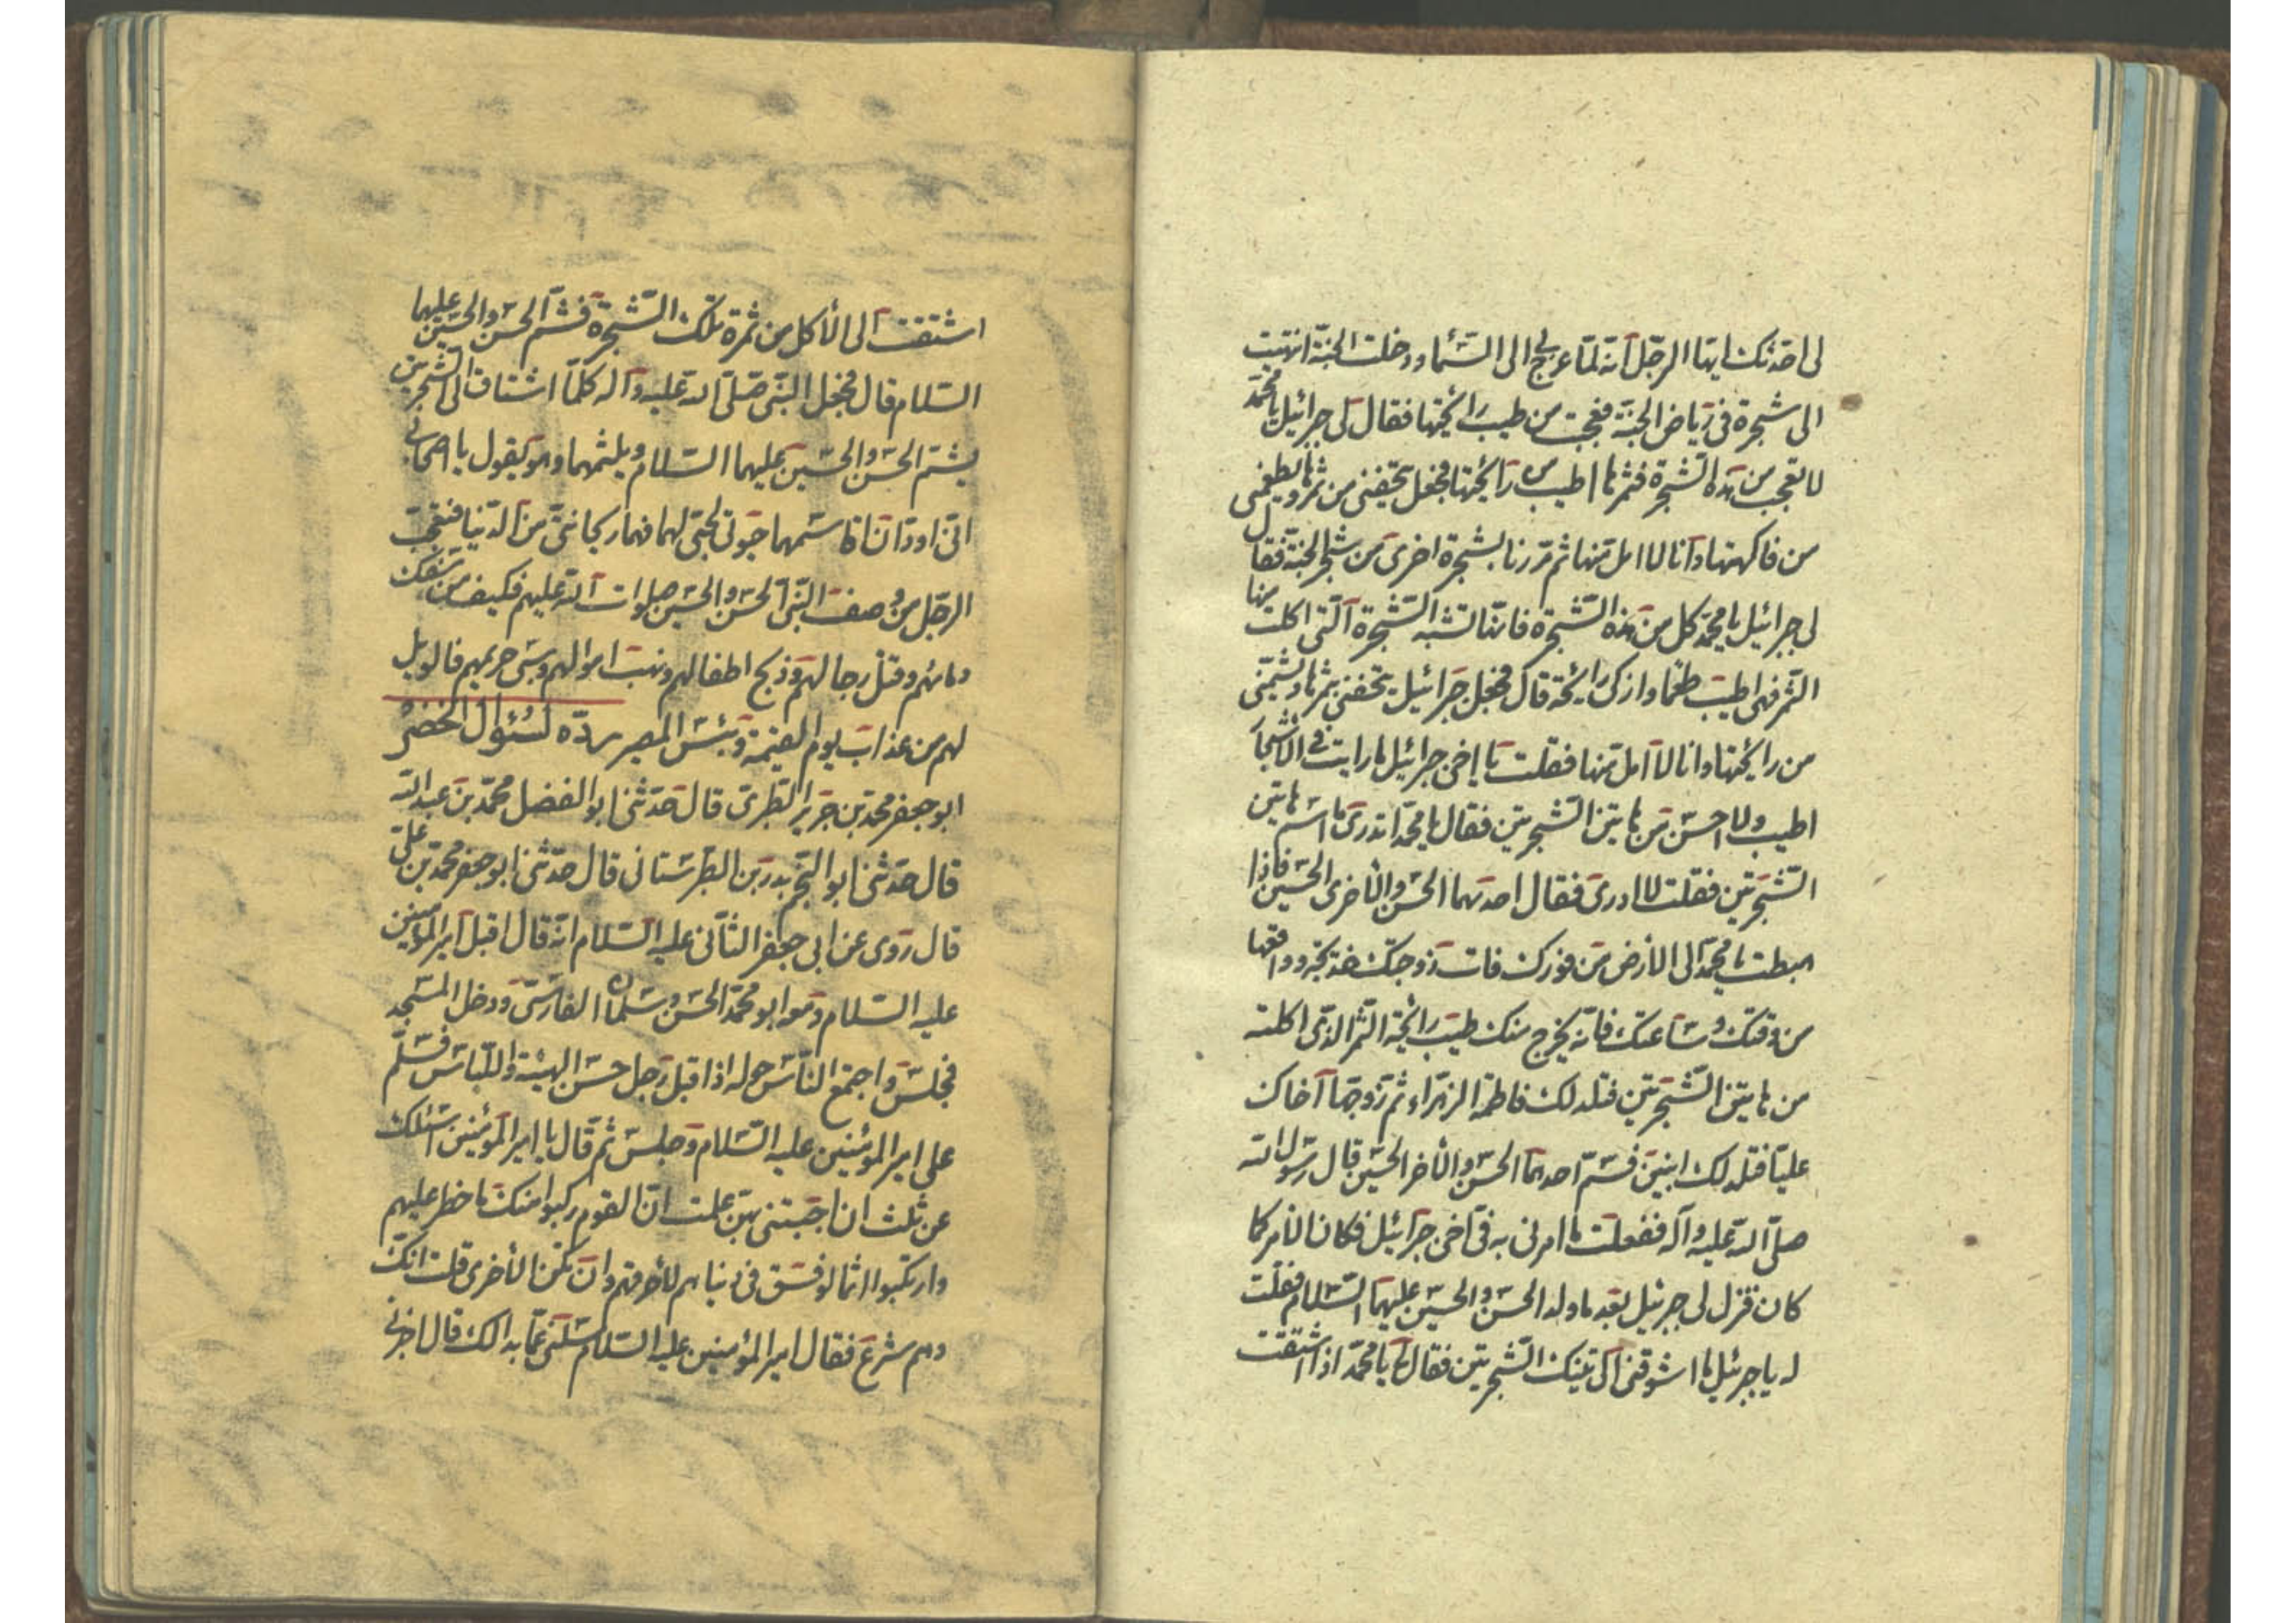 لى احدثك ايها الرجل انه لما عرج بى الى السماء ودخلت الجنة انتهيت
الى شجرة فى رياض الجنة فعجبت من طيب رائحتها فقال لى جبرائيل يا محمد
لا تعجب من هذه الشجرة فثمرها اطيب من رائحتها فجعل يتحفنى من ثمرها ويطعمنى
من فاكهتها وانا لا امل منها ثم مررنا بشجرة اخرى من شجر الجنة فقال
لى جبرائيل يا محمد كل من هذه الشجرة فانها تشبه الشجرة التى اكلت منها
الثمر فهى اطيب طعما وازكى رائحة قال فجعل جبرائيل يتحفنى بثمرها ويشمنى
من رائحتها وانا لا امل منها فقلت يا اخى جبرائيل ما رايت فى الاشجار
اطيب ولا احسن من هاتين الشجرتين فقال يا محمد اتدرى ما اسم هاتين
الشجرتين فقلت لا ادرى فقال احديهما الحسن والأخرى الحسين فاذا
هبطت يا محمد الى الأرض من فورك فات زوجتك خديجة وواقعها
من وقتك وساعتك فانه يخرج منك طيب رائحة الثمر الذى اكلته
من هاتين الشجرتين فتلد لك فاطمة الزهراء ثم زوجها اخاك
عليا فتلد لك ابنين فسم احدهما الحسن والأخر الحسين قال رسول الله
صلى الله عليه وآله ففعلت ما امرنى به اخى جبرائيل فكان الأمر كما
كان فنزل لى جبرئيل بعد ما ولد الحسن والحسين عليهما السلام فقلت
له يا جبرئيل ما اشوقنى الى تينك الشجرتين فقال لى يا محمد اذا اشتقت
اشتقت الى الأكل من ثمرة تلك الشجرة فشم الحسن والحسين عليهما
السلام قال فجعل النبى صلى الله عليه وآله كلما اشتاق الى الشجرتين
يشم الحسن والحسين عليهما السلام ويلثمهما وهو يقول يا اصحابى
انى اود ان اقاسمهما حيوتى لحبى لهما فهما ريحانتى من الدنيا فتعجب
الرجل من وصف النبى الحسن والحسين صلوات الله عليهم فكيف من سفك
دمائهم وقتل رجالهم وذبح اطفالهم ونهب اموالهم وسبى حريمهم فالويل
لهم من عذاب يوم القيمة وبئس المصير رده لسئوال الخضر
ابو جعفر محمد بن جرير الطبرى قال حدثنى ابو الفضل محمد بن عبد الله
قال حدثنى ابو النجم بدر بن الطبرستانى قال حدثنى ابو جعفر محمد بن على
قال روى عن ابى جعفر الثانى عليه السلام انه قال اقبل امير المؤمنين
عليه السلام ومعه ابو محمد الحسن وسلمان الفارسى ودخل المسجد
فجلس واجتمع الناس حوله اذا قبل رجل حسن الهيئة واللباس فسلم
على امير المؤمنين عليه السلام وجلس ثم قال يا امير المؤمنين اسئلك
عن ثلث ان اجبتنى بهن علمت ان القوم ركبوا منك ما خطر عليهم
وارتكبوا اثما فى دنياهم وان تكن الأخرى قلت انك
وهم شرع فقال امير المؤمنين عليه السلام سلنى عما بدالك قال اخبرنى